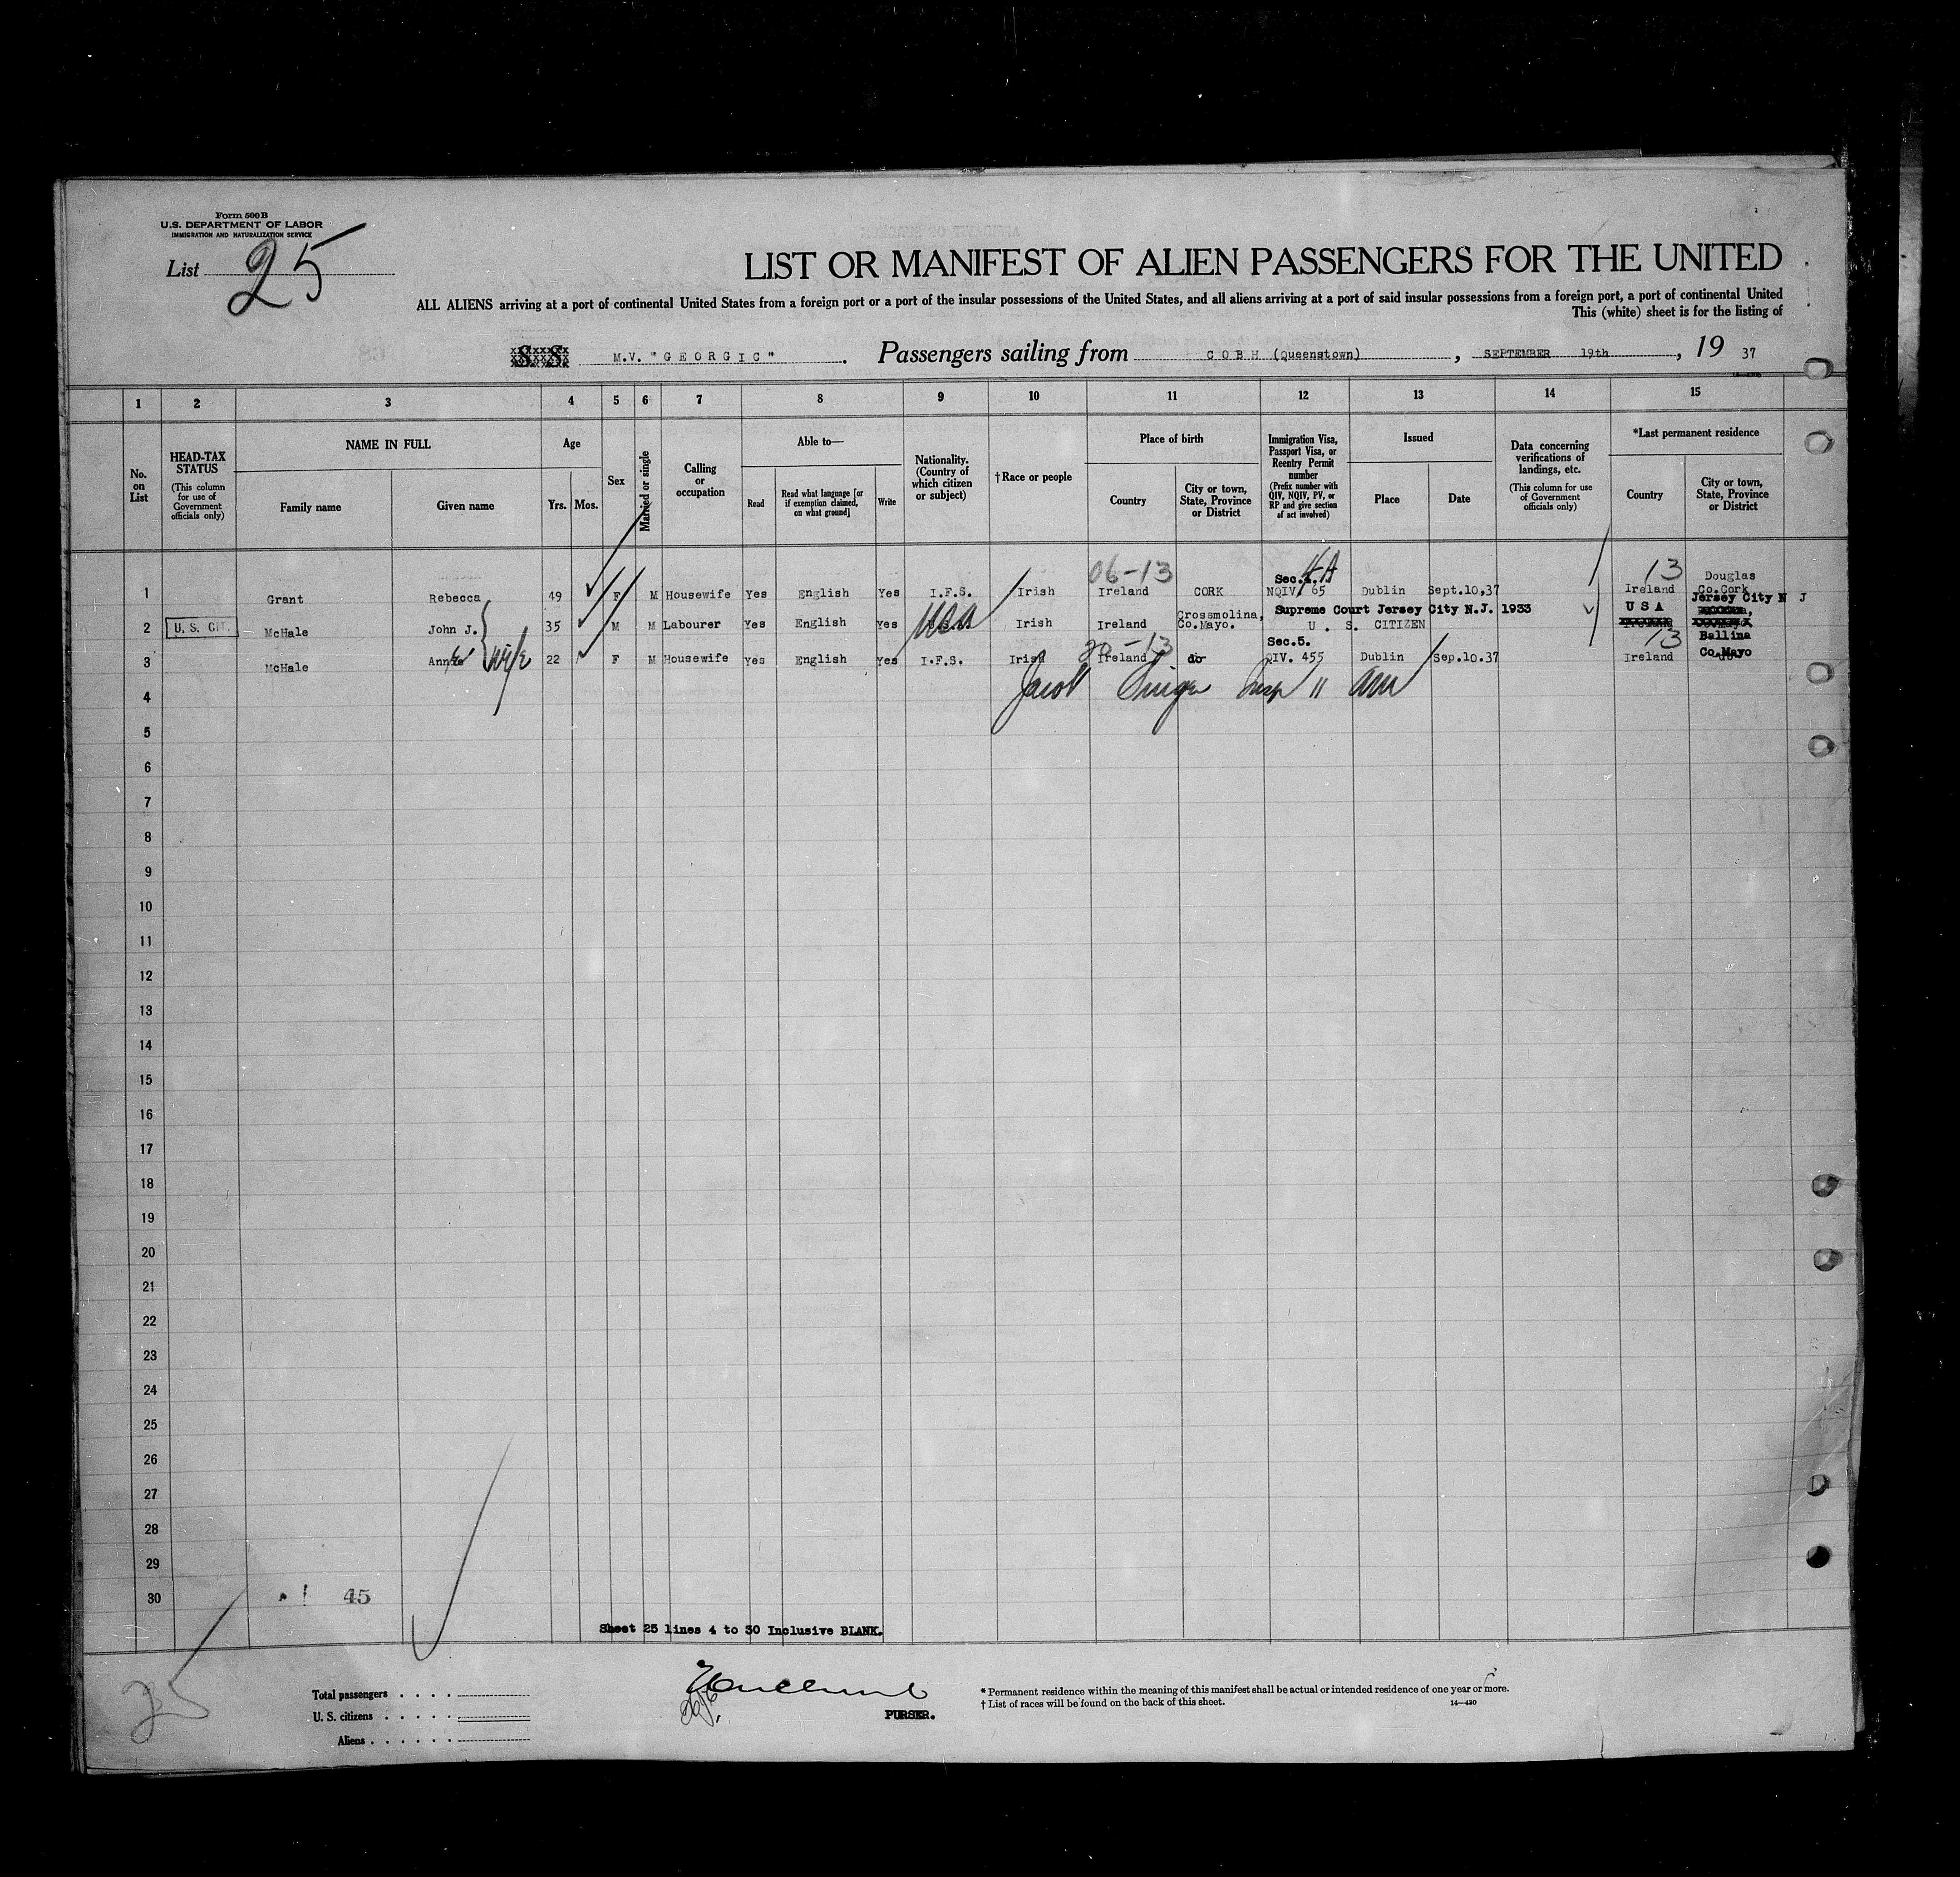 Form 500B
U.S. DEPARTMENT OF LABOR
IMMIGRATION AND NATURALIZATION SERVICE
List 25
LIST OR MANIFEST OF ALIEN PASSENGERS FOR THE UNITED
ALL ALIENS arriving at a port of continental United States from a foreign port or a port of the insular possessions of the United States, and all aliens arriving at a port of said insular possessions from a foreign port, a port of continental United
This (white) sheet is for the listing of
S S M.V. "GEORGIC". Passengers sailing from COBH (Queenstown), SEPTEMBER 19th, 19 37
1 2 3 4 5 6 7 8 9 10 11 12 13 14 15
No. on List
HEAD-TAX STATUS
(This column for use of Government officials only)
NAME IN FULL
Family name Given name
Age
Yrs. Mos.
Sex
Married or single
Calling or occupation
Able to—
Read
Read what language [or if exemption claimed, on what ground]
Write
Nationality. (Country of which citizen or subject)
†Race or people
Place of birth
Country
City or town, State, Province or District
Immigration Visa, Passport Visa, or Reentry Permit number
(Prefix number with QIV, NQIV, PV, or RP and give section of act involved)
Issued
Place Date
Data concerning verifications of landings, etc.
(This column for use of Government officials only)
*Last permanent residence
Country
City or town, State, Province or District
06-13 Sec.4. 4A 13 Douglas
1 Grant Rebecca 49 F M Housewife Yes English Yes I.F.S. Irish Ireland CORK NQIV 65 Dublin Sept.10,37 Ireland Co.Cork
Crossmolina, Supreme Court Jersey City N.J. 1933 USA Jersey City N J
2 U.S. CIT. McHale John J. 35 M M Labourer Yes English Yes USA Irish Ireland Co.Mayo. U. S. CITIZEN
20-13 Sec.5. 13 Ballina
3 McHale Annie wife 22 F M Housewife Yes English Yes I.F.S. Irish Ireland do QIV. 455 Dublin Sep.10.37 Ireland Co.Mayo
4 Jacob Insp
5
6
7
8
9
10
11
12
13
14
15
16
17
18
19
20
21
22
23
24
25
26
27
28
29
30 45
Sheet 25 lines 4 to 30 Inclusive BLANK.
25
Total passengers
U.S. citizens
Aliens
PURSER.
* Permanent residence within the meaning of this manifest shall be actual or intended residence of one year or more.
† List of races will be found on the back of this sheet.
14—430